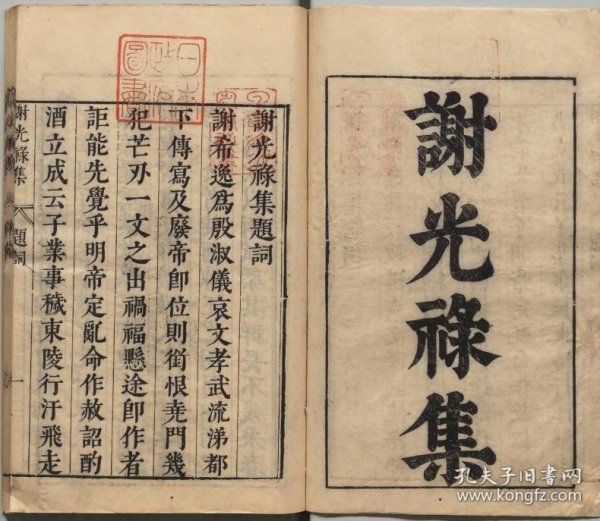 謝光祿集
謝光祿集題詞
謝希逸爲殷淑儀哀文孝武流涕都
下傳寫及廢帝卽位則銜恨堯門幾
犯芒刃一文之出禍福懸途卽作者
詎能先覺乎明帝定亂命作赦詔酌
酒立成云子業事穢東陵行汙飛走
謝光祿集
題詞
一
孔夫子旧书网
www.kongfz.com